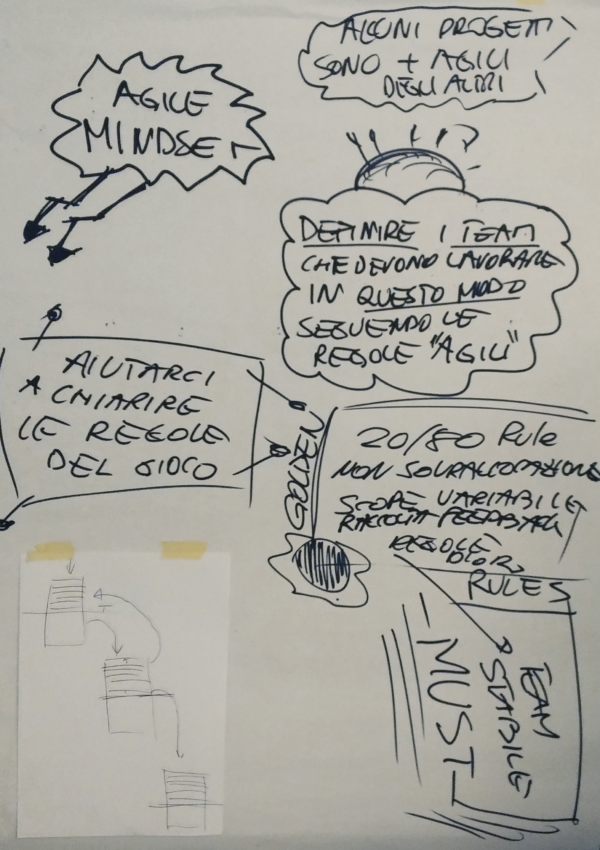 AGILE
MINDSET
ALCUNI PROGETTI
SONO + AGILI
DEGLI ALTRI
DEFINIRE I TEAM
CHE DEVONO LAVORARE
IN QUESTO MODO
SEGUENDO LE
REGOLE "AGILI"
AIUTARCI
A CHIARIRE
LE REGOLE
DEL GIOCO
GOLDEN
20/80 Rule
NON SOVRALLOCAZIONE
SCOPE VARIABILE
RACCOLTA FEEDBACK
REGOLE
RULES
TEAM
STABILE
MUST